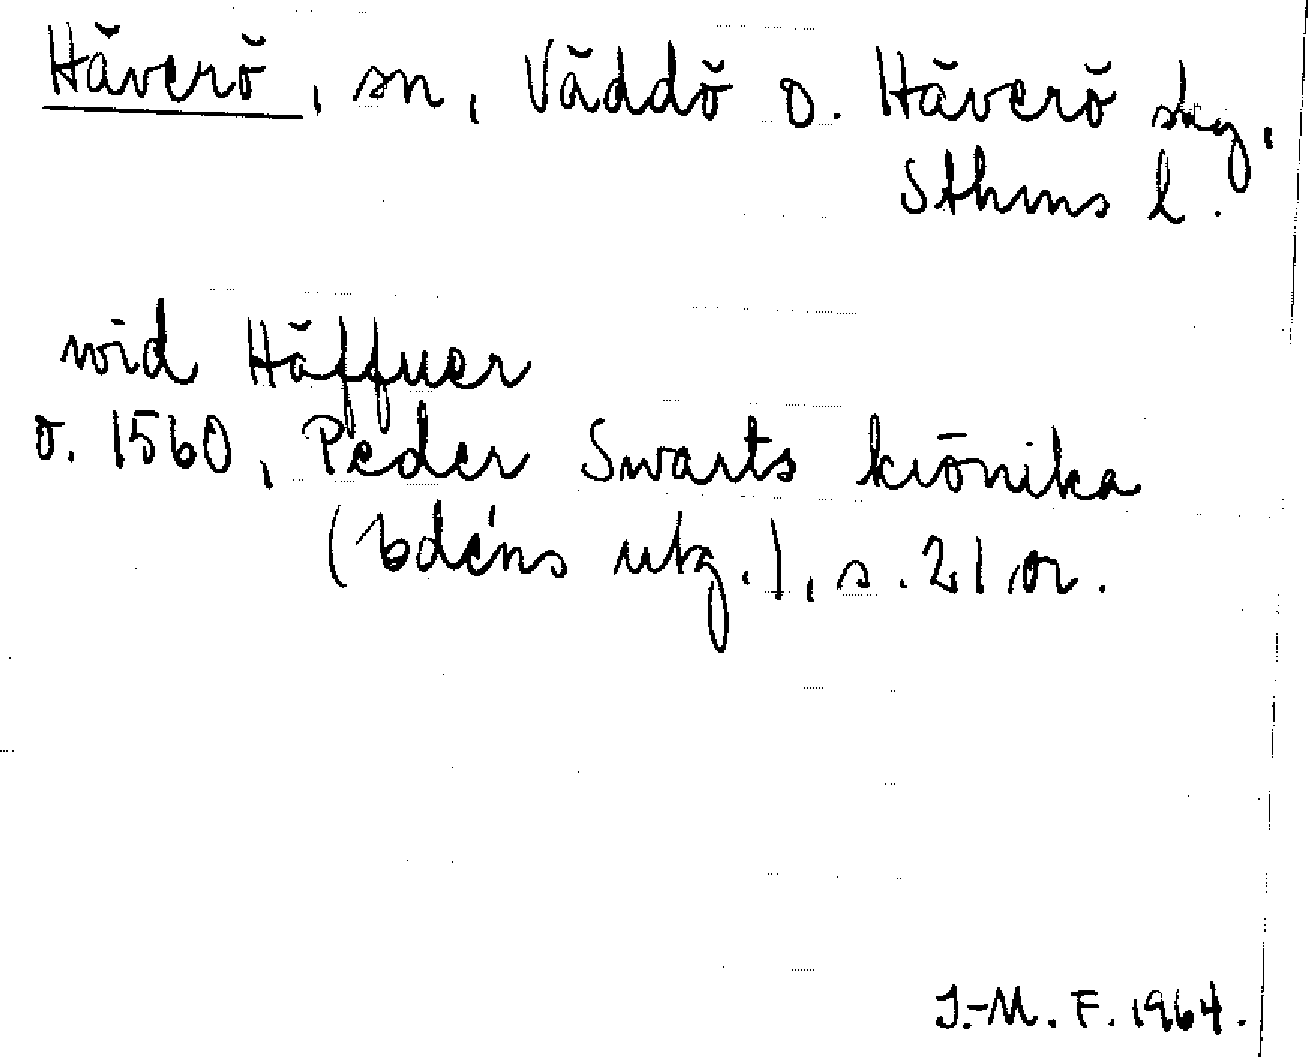 Häverö, sn, Väddö o. Häverö skg,
Sthms l.
wid Häffuer
o. 1560, Peder Swarts krönika
(Edéns utg.), s. 21 or.
J.-M. F. 1964.